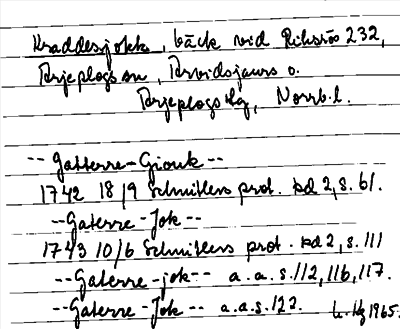 Kraddesjokk, bäck vid Riksrös 232,
Arjeplogs sn, Arvidsjaurs o.
Arjeplogs tg, Norrb. l.
-- Gatterre-Giouk --
1742 18/9 Schnitlers prot. bd 2, s. 61.
-- Gaterre-Jok --
1743 10/6 Schnitlers prot. bd 2, s. 111
-- Gaterre-jok -- a.a.s. 112, 116, 117.
-- Gaterre-Jok -- a.a.s. 122.
1965.